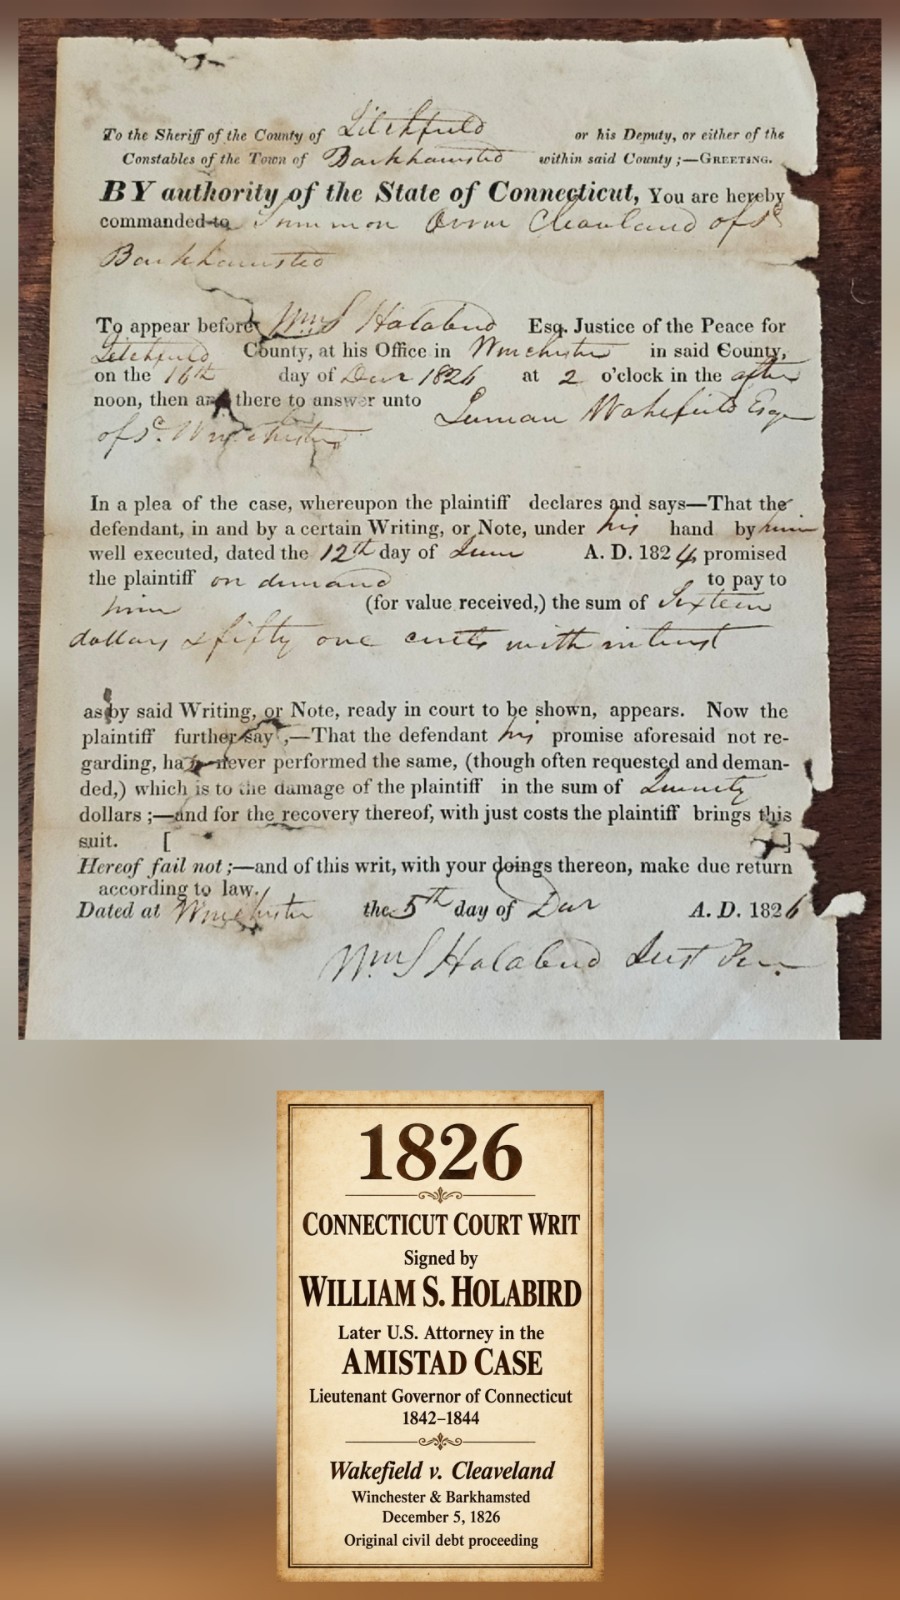 To the Sheriff of the County of Litchfield or his Deputy, or either of the
Constables of the Town of Barkhamsted within said County ;—GREETING.
BY authority of the State of Connecticut, You are hereby
commanded to Summon Orrin Cleaveland of sd
Barkhamsted
To appear before Wm S Holabird Esq. Justice of the Peace for
Litchfield County, at his Office in Winchester in said County,
on the 16th day of Decr 1826 at 2 o'clock in the after
noon, then and there to answer unto Luman Wakefield Esqr
of sd. Winchester
In a plea of the case, whereupon the plaintiff declares and says—That the
defendant, in and by a certain Writing, or Note, under his hand by him
well executed, dated the 12th day of June A. D. 1824 promised
the plaintiff on demand to pay to
him (for value received,) the sum of Sixteen
dollars & fifty one cents with interest
as by said Writing, or Note, ready in court to be shown, appears. Now the
plaintiff further say ,—That the defendant his promise aforesaid not re-
garding, ha never performed the same, (though often requested and deman-
ded,) which is to the damage of the plaintiff in the sum of Twenty
dollars ;—and for the recovery thereof, with just costs the plaintiff brings this
suit. [ ]
Hereof fail not ;—and of this writ, with your doings thereon, make due return
according to law.
Dated at Winchester the 5th day of Decr A. D. 1826
Wm S Holabird Just Peace
1826
CONNECTICUT COURT WRIT
Signed by
WILLIAM S. HOLABIRD
Later U.S. Attorney in the
AMISTAD CASE
Lieutenant Governor of Connecticut
1842–1844
Wakefield v. Cleaveland
Winchester & Barkhamsted
December 5, 1826
Original civil debt proceeding